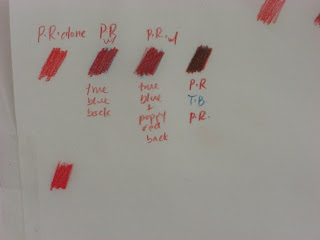 P.R. alone P.B w/ P.R. w/
true true P.R
blue blue T.B.
back + P.R.
poppy
red
back